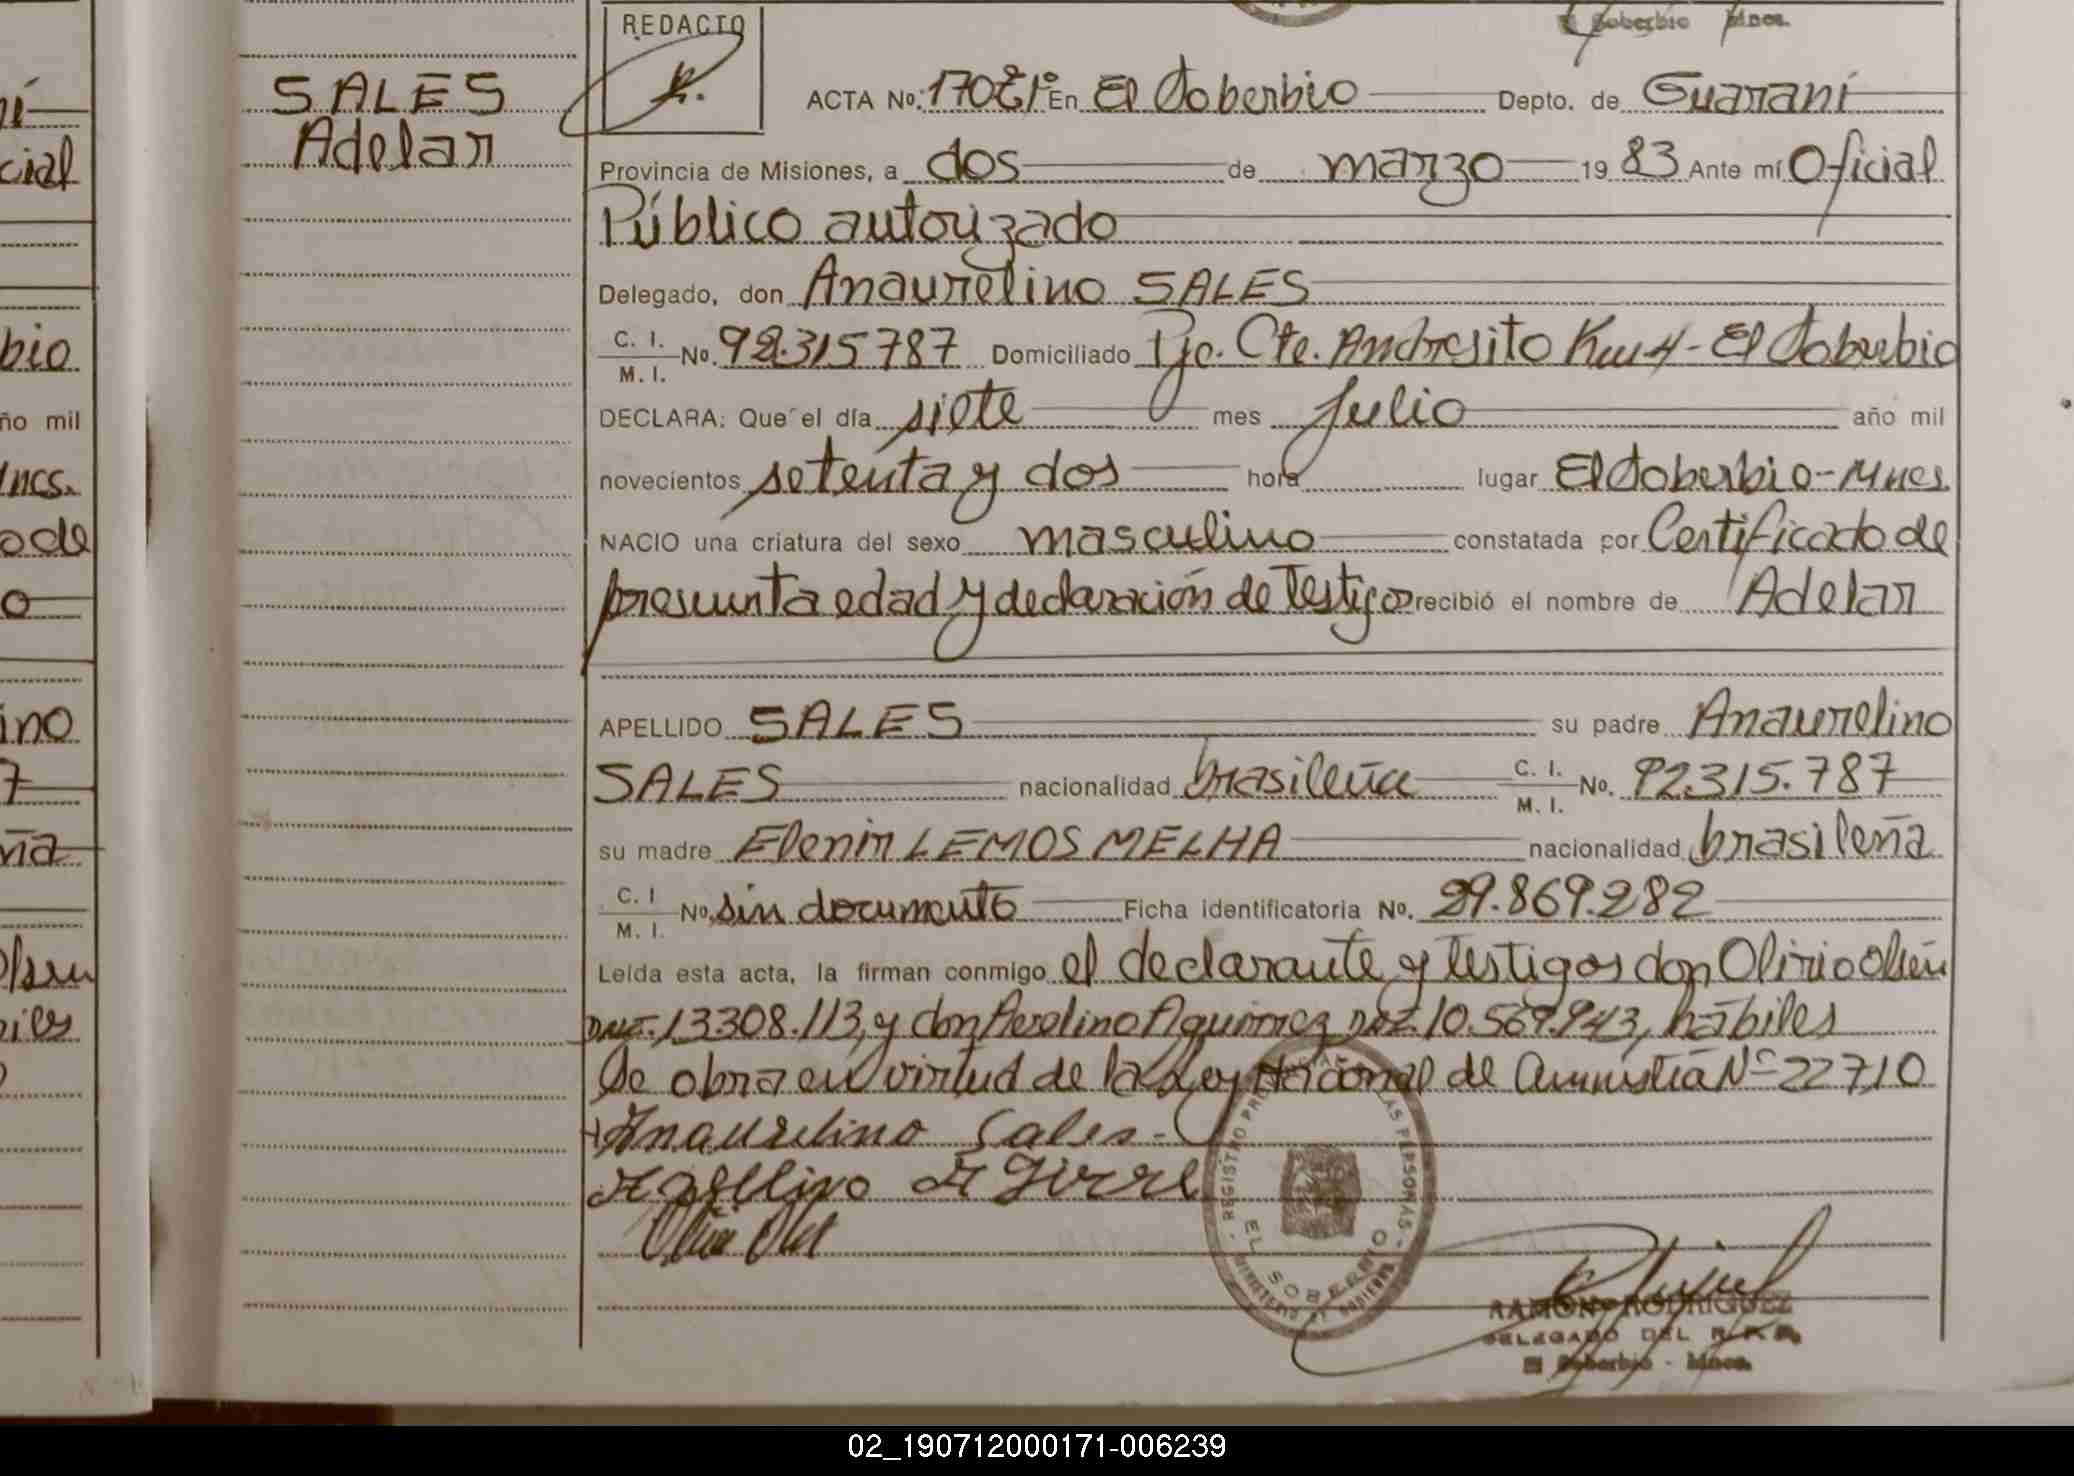 Soberbio Mnes.
REDACTO
SALES
Adelar
ACTA No. 170 En El Soberbio Depto. de Guaraní
Provincia de Misiones, a dos de marzo 19 83 Ante mí Oficial
Público autorizado
Delegado, don Anaurelino SALES
C. I.
M. I.
No. 92.315787 Domiciliado Pje. Cte. Andresito Km 4 - El Soberbio
DECLARA: Que el día siete mes Julio año mil
novecientos setenta y dos hora lugar El Soberbio - Mnes
NACIO una criatura del sexo masculino constatada por Certificado de
presunta edad y declaración de Testigos recibió el nombre de Adelar
APELLIDO SALES su padre Anaurelino
SALES nacionalidad brasileña C. I. M. I. No. 92.315.787
su madre Elenir LEMOS MELHA nacionalidad brasileña
C. I. M. I. No. sin documento Ficha identificatoria No. 29.869.282
Leída esta acta, la firman conmigo el declarante y testigos don Olirio
13308.113, y don Aguirrez 10.569.943, hábiles
Se obra en virtud de la Ley Nacional de Amnistía Nº 22710
Anaurelino Sales
REGISTRO PROVINCIAL DE LAS PERSONAS
EL SOBERBIO
RAMON RODRIGUEZ
DELEGADO DEL R.P.P.
El Soberbio - Mnes.
bio
ño mil
Mnes.
o de
ino
7
ña
02_190712000171-006239